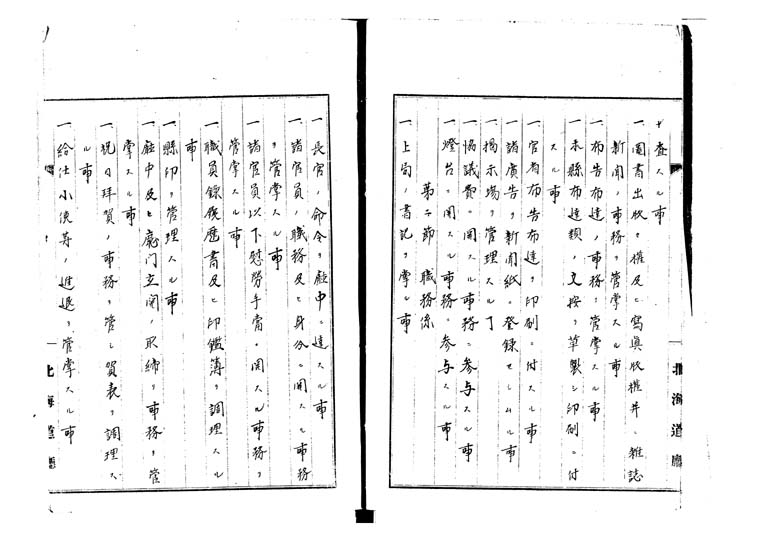 ヲ査スル事
一圖書出版ヲ權及ヒ寫眞版權并ニ雜誌
新聞ノ事務ヲ管掌スル事
一布告布達ノ事務ヲ管掌スル事
一本縣布達類ノ文按ヲ草製シ印刷ニ付
スル事
一官省布告布達ヲ印刷ニ付スル事
一諸廣告ヲ新聞紙ニ登録セシムル事
一揭示場ヲ管理スル事
一協議費ニ関スル事務ニ参与スル事
一燈台ニ関スル事務ニ参与スル事
第二節 職務係
一上局ノ書記ヲ掌ル事
北海道廳
一長官ノ命令ヲ廳中ニ達スル事
一諸官員ノ職務及ヒ身分ニ関スル事務
ヲ管掌スル事
一諸官員以下慰勞手當ニ関スル事務ヲ
管掌スル事
一職員錄履歴書及ヒ印鑑簿ヲ調理スル
事
一縣印ヲ管理スル事
一廳中及ヒ廳門立関ノ取締リ事務ヲ管
掌スル事
一祝日拜賀ノ事務ヲ管シ賀表ヲ調理ス
ル事
一給仕小使等ノ進退ヲ管掌スル事
北海道廳